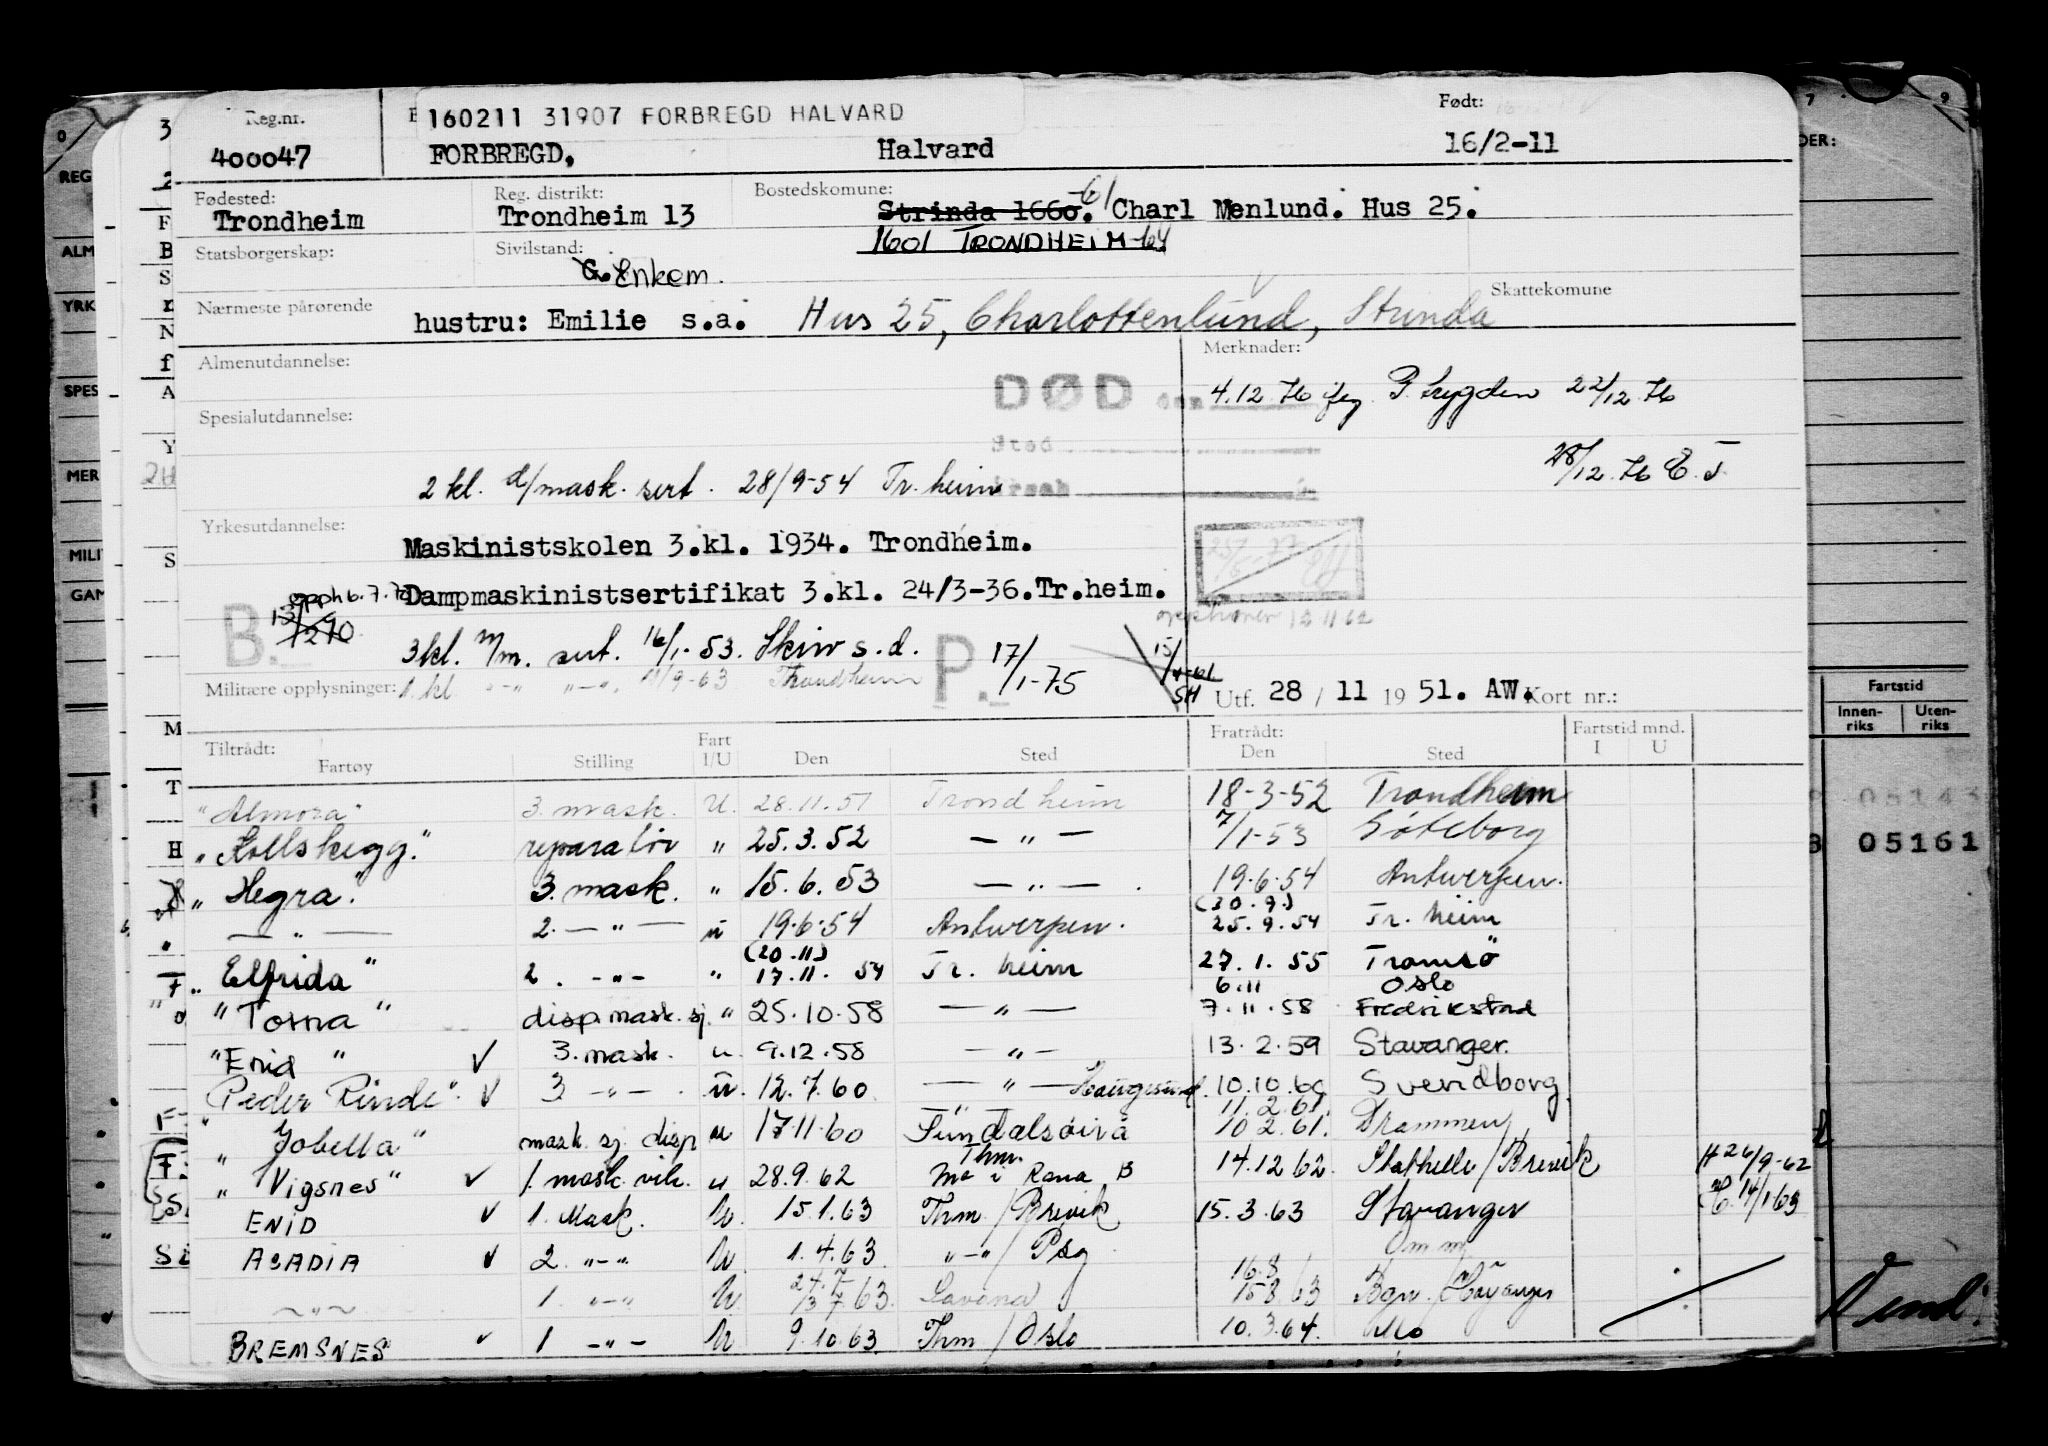 Reg.nr. 160211 31907 FORBREGD HALVARD Født:
400047 FORBREGD, Halvard 16/2-11
Fødested: Reg. distrikt: Bostedskomune:
Trondheim Trondheim 13 Strinda 1660. -61 Charl Menlund. Hus 25.
1601 TRONDHEIM-64
Statsborgerskap: Sivilstand:
G. Enkem.
Nærmeste pårørende Skattekomune
hustru: Emilie s.a. Hus 25, Charlottenlund, Strinda
Almenutdannelse: Merknader:
DØD den 4.12.76 jfg. P. trygden 22/12.76
Spesialutdannelse:
Sted
28/12.76 E.T.
2 kl. d/mask. sert. 28/9-54 Tr.heim
Årsak
Yrkesutdannelse:
Maskinistskolen 3.kl. 1934. Trondheim.
opph 6.7.70
Dampmaskinistsertifikat 3.kl. 24/3-36.Tr.heim.
B. 3kl. m/m. sert. 16/1-53. Skiw s.d. P. 17/1-75 15/4-61 SH
Militære opplysninger: 1.kl -"- -"- 11/9-63 Trondheim
Utf. 28 / 11 1951. AW. Kort nr.:
Tiltrådt: Fratrådt: Fartstid mnd.
Fartøy Stilling Fart I/U Den Sted Den Sted I U
"Almora" 3. mask. U. 28.11.51 Trondheim 18-3-52 Trondheim
"Kollskegg." reparatör " 25.3.52 — " — 7/1-53 Göteborg
"Hegra". 3. mask. " 15.6.53 — " — 19.6.54 Antwerpen.
— " — 2. — " — u 19.6.54 Antwerpen. (30.9.) 25.9.54 Tr. heim
"Elfrida" 2. -"- " (20.11) 17.11.54 Tr. heim 27.1.55 Tromsö
"Torna" disp. mask. sj. " 25.10.58 — " — 6.11 Oslo 7.11.58 Fredrikstad
"Enid" ✓ 3. mask. u. 9.12.58 — " — 13.2.59 Stavanger.
"Peder Rinde". ✓ 3 -"- u. 12.7.60 — " — Haugesund. 10.10.60 Svendborg
"Jobella" mask. sj. disp u 17.11.60 11.2.61. 10 2.61. Drammen
"Vigsnes" ✓ 1. mask. vik. u 28.9.62 Thm. Mo i Rana B 14.12 62. Stathelle/Brevik H 26/9-62
ENID ✓ 1. Mask. U. 15.1.63 Thm / Brevik 15.3.63 Stavanger H. 14/1 63
ACADIA ✓ 2. "-" U 1.4.63 "-" / Psg
~"~ 1. "-" U 24.7 13 7 63. 16.8 15 8 63
BREMSNES ✓ 1 -"- U 9.10.63 Thm / Oslo 10.3.64.
Fartstid
Innen-riks Uten-riks
05161
Vend!